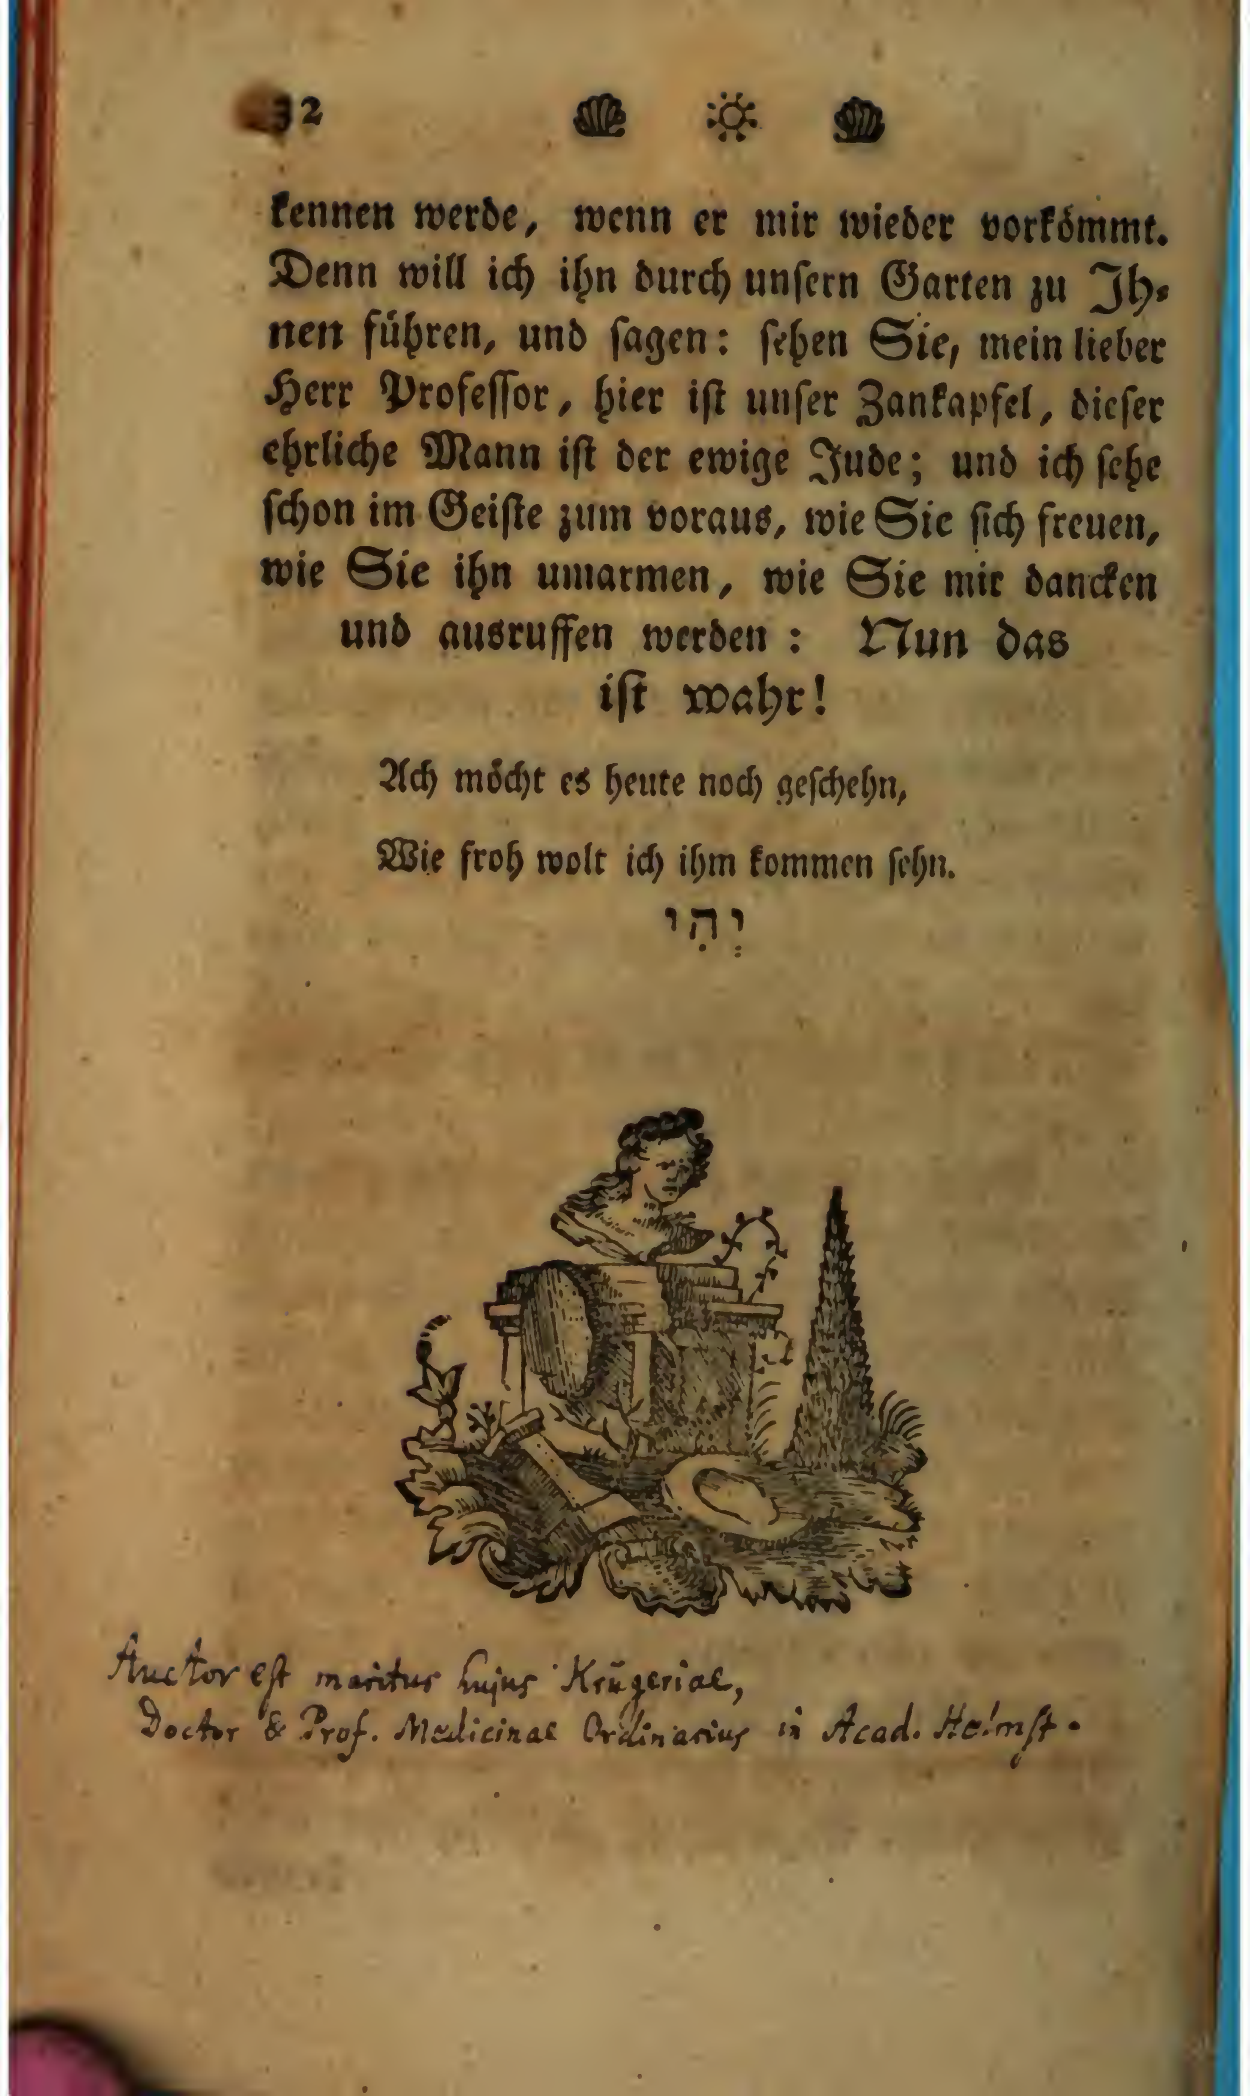 32
kennen werde, wenn er mir wieder vorkömmt.
Denn will ich ihn durch unsern Garten zu Ih⸗
nen führen, und sagen: sehen Sie, mein lieber
Herr Professor, hier ist unser Zankapfel, dieser
ehrliche Mann ist der ewige Jude; und ich sehe
schon im Geiste zum voraus, wie Sie sich freuen,
wie Sie ihn umarmen, wie Sie mir dancken
und ausruffen werden: Nun das
ist wahr!
Ach möcht es heute noch geschehn,
Wie froh wolt ich ihm kommen sehn.
יְהִי
Auctor est maritus hujus Krügeriae,
Doctor & Prof. Medicinae Ordinarius in Acad. Helmst.